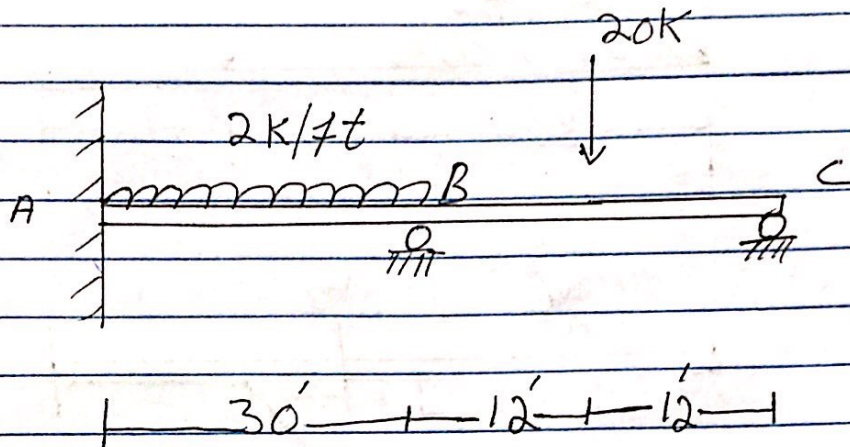 20K
2K/ft
A B C
30' 12' 12'